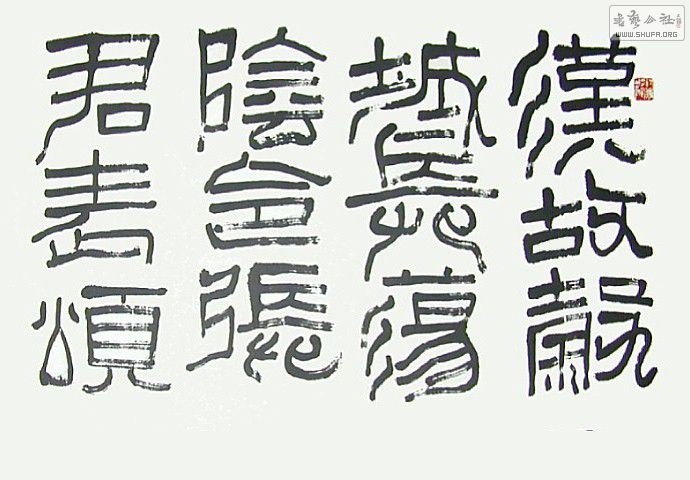 漢故穀
城長蕩
陰令張
君表頌
書藝公社
WWW.SHUFA.ORG